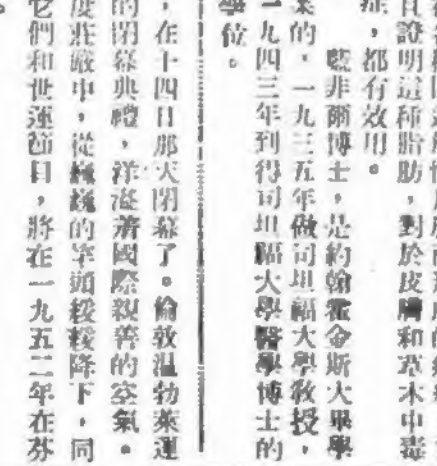 且證明這種脂肪，對於皮膚和草木中毒
症，都有效用。
藍非爾博士，是約翰霍金斯大畢學
業的，一九三五年做司坦福大學教授，
一九四三年到得司坦福大學醫學博士的
學位。
，在十四日那天閉幕了。倫敦溫勃萊運
的閉幕典禮，洋溢着國際親善的空氣。
度莊嚴中，從巍巍的竿頭緩緩降下，同
它們和世運節目，將在一九五二年在芬
。